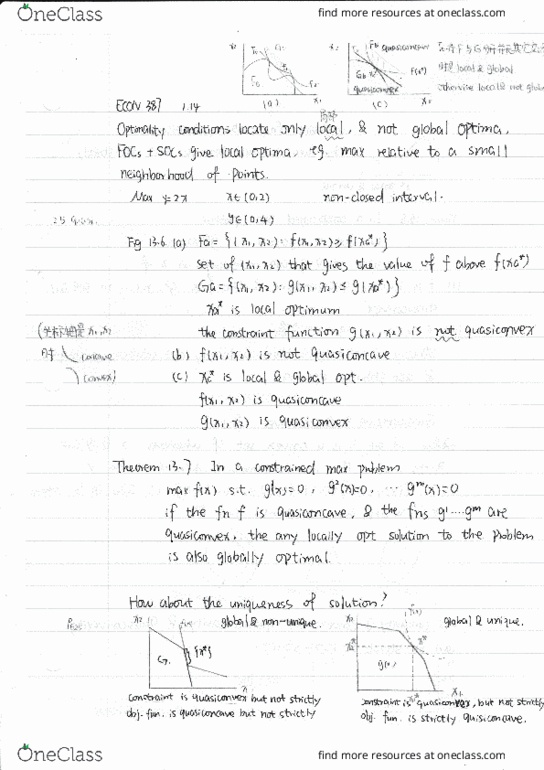 OneClass
find more resources at oneclass.com
x₂
x₁
(a)
Fb quasiconcave
Gb
quasiconvex
f(xc*)
x₁
(c)
local & global
otherwise local & not global
ECON 387 1.14
局部
Optimality conditions locate only local, & not global optima.
FOCs + SOCs give local optima. eg. max relative to a small
neighborhood of points.
Max y=2x x∈(0,2) non-closed interval.
y∈(0,4)
Fig 13.6 (a) Fa = {(x₁,x₂): f(x₁,x₂) ≥ f(xa*)}
set of (x₁,x₂) that gives the value of f above f(xa*)
Ga = {(x₁,x₂): g(x₁,x₂) ≤ g(xa*)}
xa* is local optimum
the constraint function g(x₁,x₂) is not quasiconvex
concave
convex)
(b) f(x₁,x₂) is not quasiconcave
(c) xc* is local & global opt.
f(x₁,x₂) is quasiconcave
g(x₁,x₂) is quasiconvex
Theorem 13.7 In a constrained max problem
max f(x) s.t. g¹(x)=0, g²(x)=0, ... gᵐ(x)=0
if the fn f is quasiconcave, & the fns g¹...gᵐ are
quasiconvex, the any locally opt solution to the problem
is also globally optimal.
How about the uniqueness of solution?
global & non-unique.
x₂
{x*}
G
global & unique.
x₂
x*
g(x)
x₁
constraint is quasiconvex but not strictly
obj. fun. is quasiconcave but not strictly
constraint is quasiconvex, but not strictly
obj. fun. is strictly quisiconcave.
OneClass
find more resources at oneclass.com